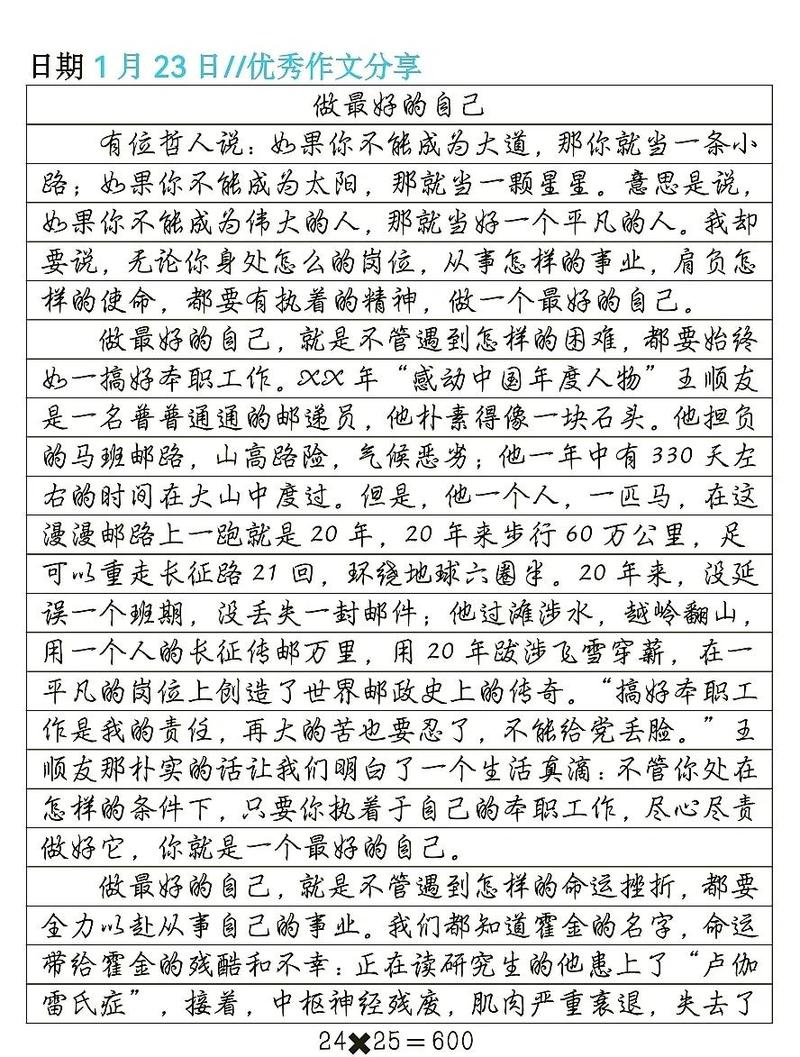 日期 1 月 23 日//优秀作文分享
做最好的自己
有位哲人说：如果你不能成为大道，那你就当一条小
路；如果你不能成为太阳，那就当一颗星星。意思是说，
如果你不能成为伟大的人，那就当好一个平凡的人。我却
要说，无论你身处怎么的岗位，从事怎样的事业，肩负怎
样的使命，都要有执着的精神，做一个最好的自己。
做最好的自己，就是不管遇到怎样的困难，都要始终
如一搞好本职工作。XX 年“感动中国年度人物”王顺友
是一名普普通通的邮递员，他朴素得像一块石头。他担负
的马班邮路，山高路险，气候恶劣；他一年中有 330 天左
右的时间在大山中度过。但是，他一个人，一匹马，在这
漫漫邮路上一跑就是 20 年，20 年来步行 60 万公里，足
可以重走长征路 21 回，环绕地球六圈半。20 年来，没延
误一个班期，没丢失一封邮件；他过滩涉水，越岭翻山，
用一个人的长征传邮万里，用 20 年跋涉飞雪穿薪，在一
平凡的岗位上创造了世界邮政史上的传奇。“搞好本职工
作是我的责任，再大的苦也要忍了，不能给党丢脸。”王
顺友那朴实的话让我们明白了一个生活真滴：不管你处在
怎样的条件下，只要你执着于自己的本职工作，尽心尽责
做好它，你就是一个最好的自己。
做最好的自己，就是不管遇到怎样的命运挫折，都要
全力以赴从事自己的事业。我们都知道霍金的名字，命运
带给霍金的残酷和不幸：正在读研究生的他患上了“卢伽
雷氏症”，接着，中枢神经残废，肌肉严重衰退，失去了
24✖25＝600